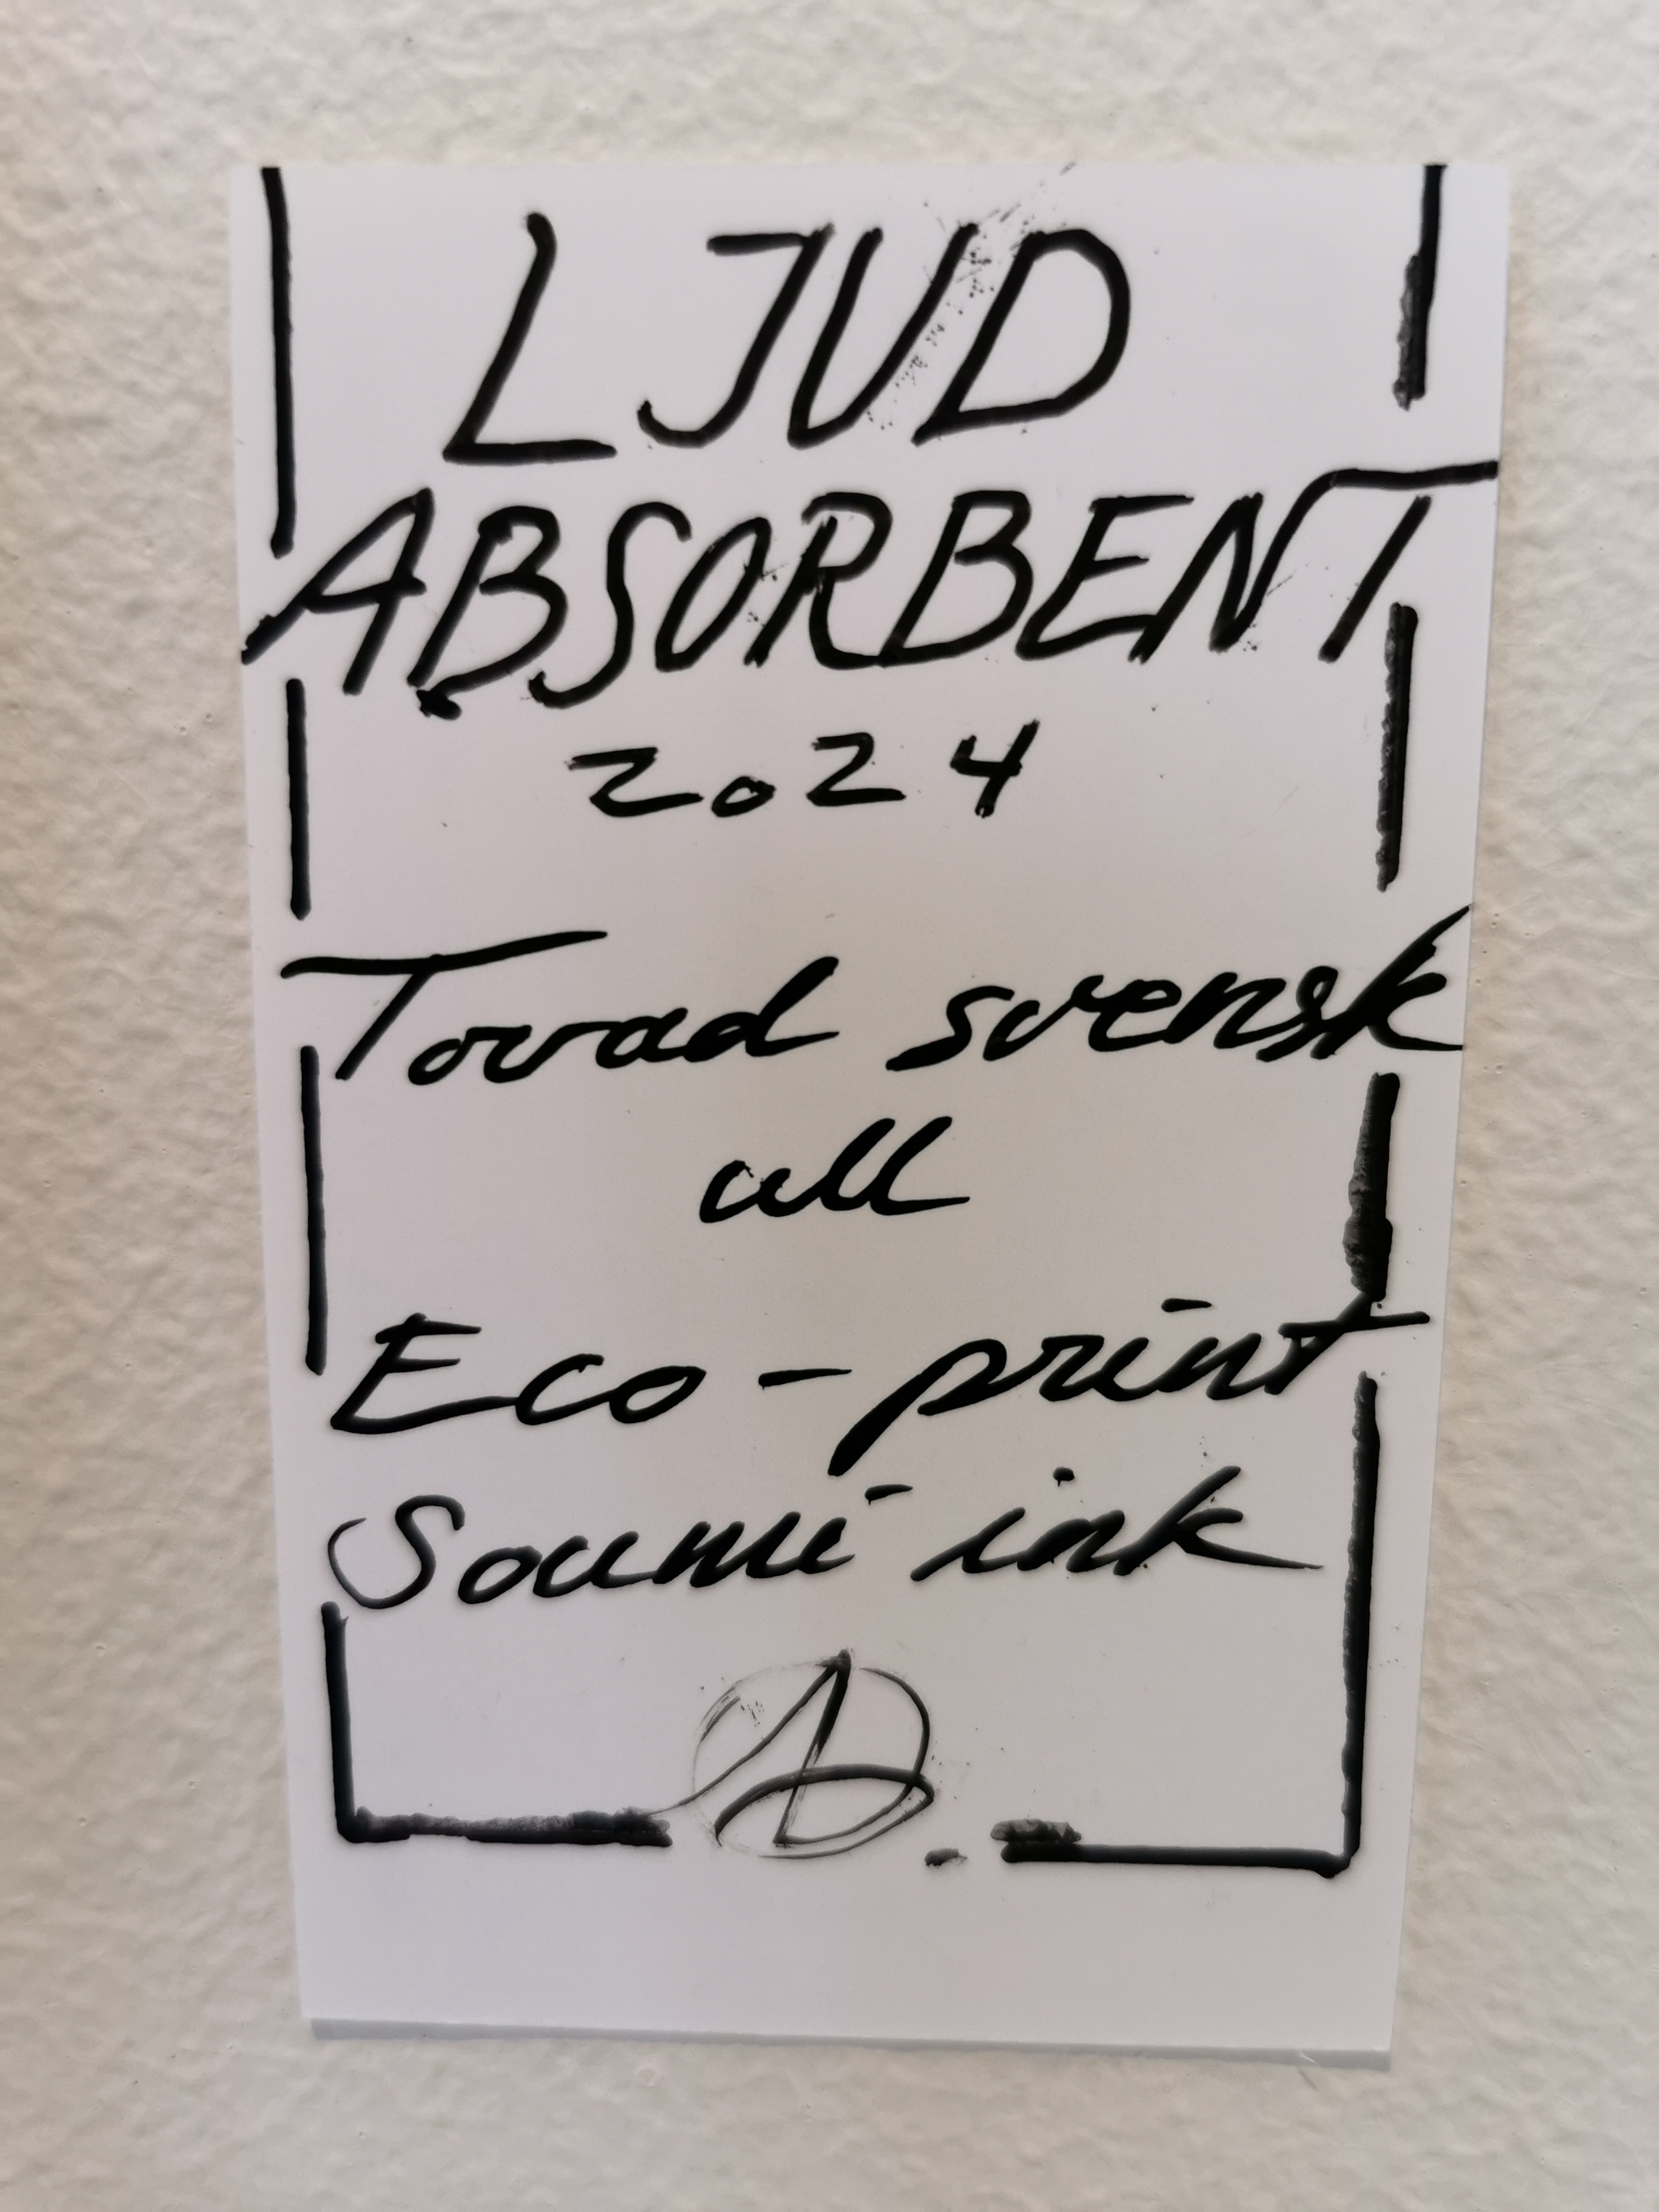 LJUD
ABSORBENT
2024
Tovad svensk
ull
Eco-print
Soumi ink